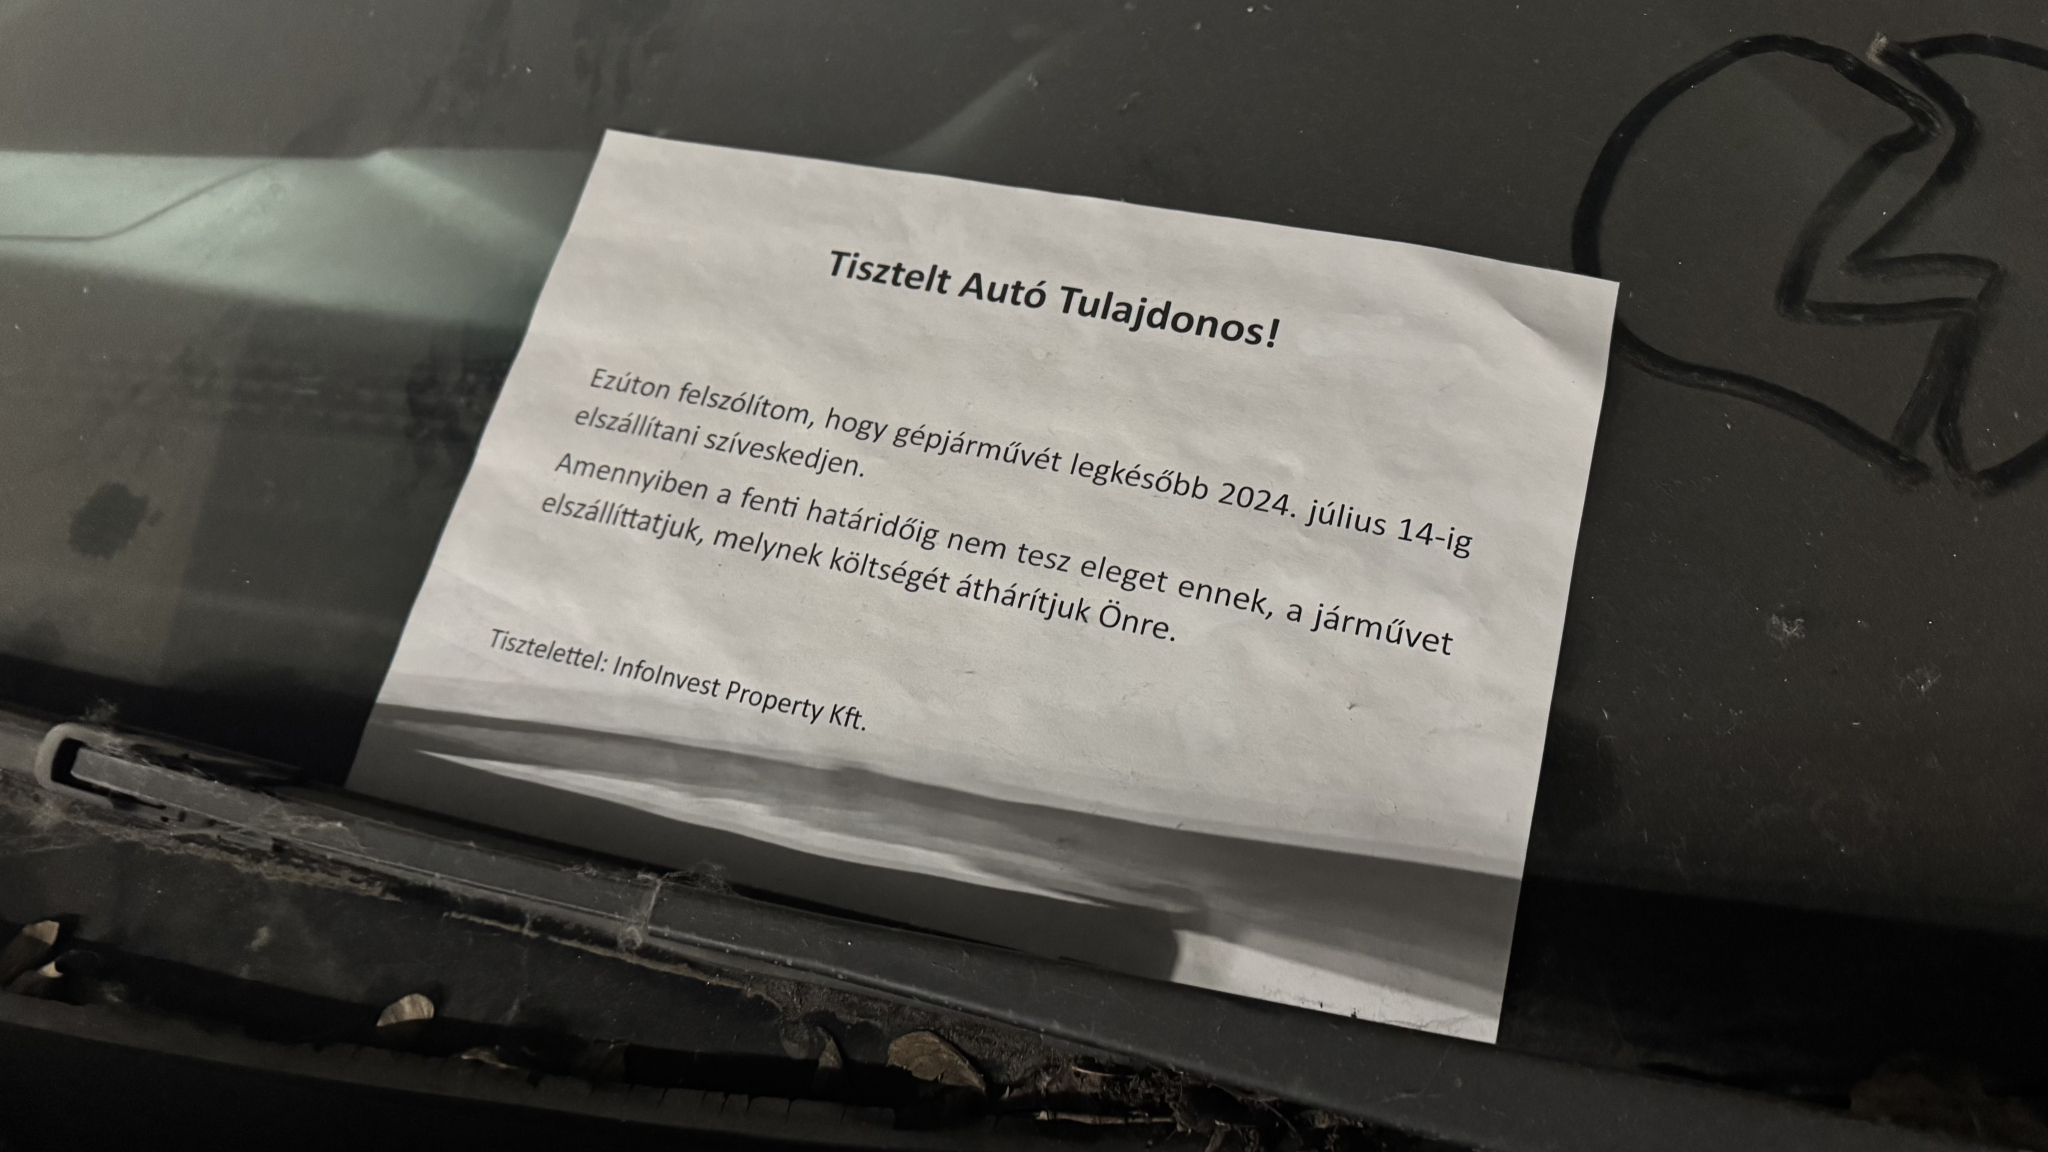 Tisztelt Autó Tulajdonos!
Ezúton felszólítom, hogy gépjárművét legkésőbb 2024. július 14-ig
elszállítani szíveskedjen.
Amennyiben a fenti határidőig nem tesz eleget ennek, a járművet
elszállíttatjuk, melynek költségét áthárítjuk Önre.
Tisztelettel: InfoInvest Property Kft.